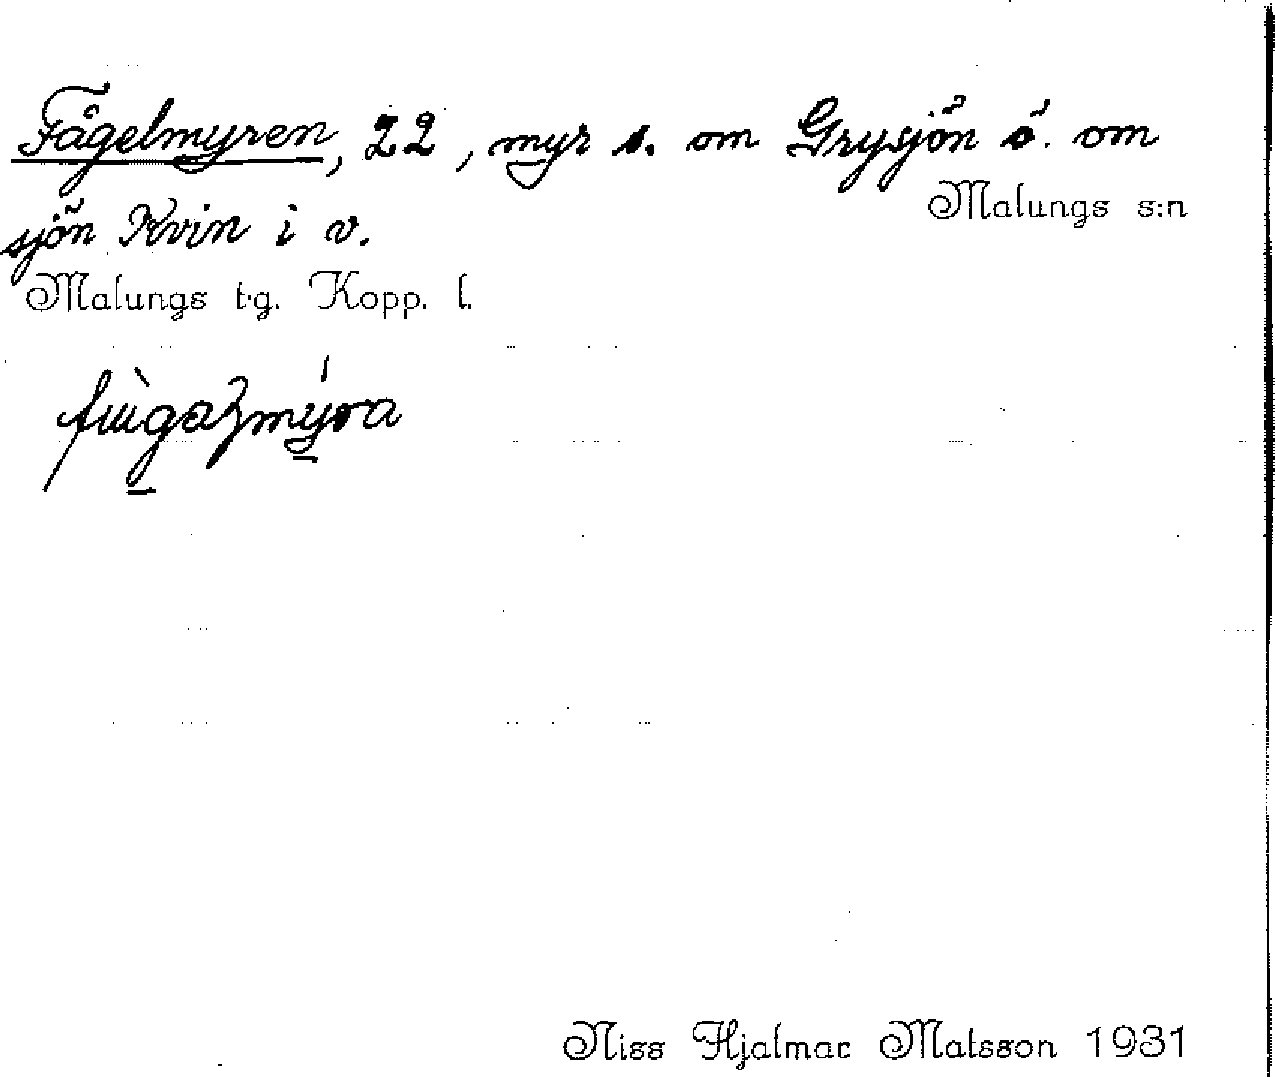 Fågelmyren, 22, myr s. om Grysjön ö. om
Malungs s:n
sjön Kvin i v.
Malungs t·g. Kopp. l.
Niss Hjalmar Matsson 1931